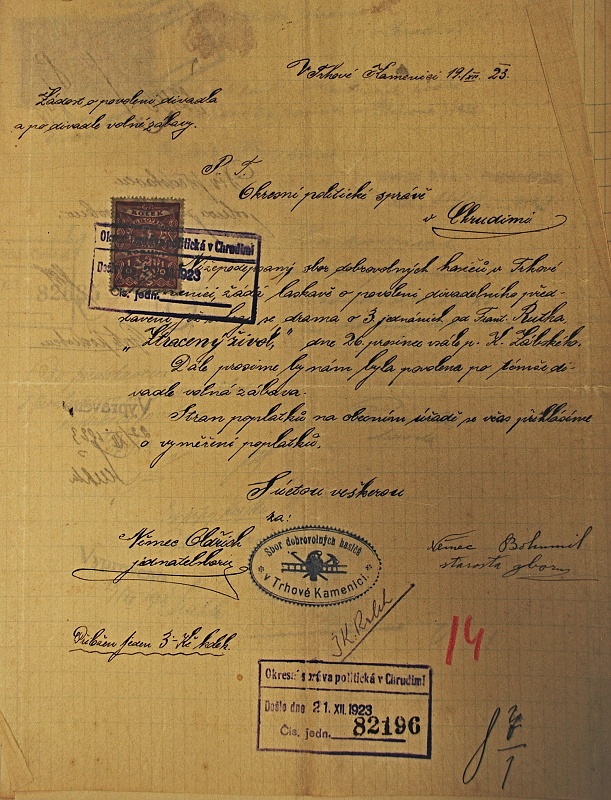 V Trhové Kamenici 19./XII. 23.
Žádost o povolení divadla
a po divadle volné zábavy.
P. T.
Okresní politické správě
v Chrudimi
KOLEK
Okresní správa politická v Chrudimi
Došlo dne 1923
Čís. jedn.
Nížepodepsaný sbor dobrovolných hasičů v Trhové
Kamenici, žádá laskavě o povolení divadelního před-
stavení se drama o 3 jednáních, od Frant. Rutha
„Ztracený život," dne 26. prosince v sále p. K. Zábského.
Dále prosíme by nám byla povolena po témže di-
vadle volná zábava.
Stran poplatků na obecním úřadě se včas přihlásíme
o vyměření poplatků.
S úctou veškerou
za:
Němec Oldřich
jednatel sboru
Sbor dobrovolných hasičů
v Trhové Kamenici
Němec Bohumil
starosta sboru
Přiložen jeden 3-Kč kolek.
14
Okresní správa politická v Chrudimi
Došlo dne 21. XII. 1923
Čís. jedn. 82196